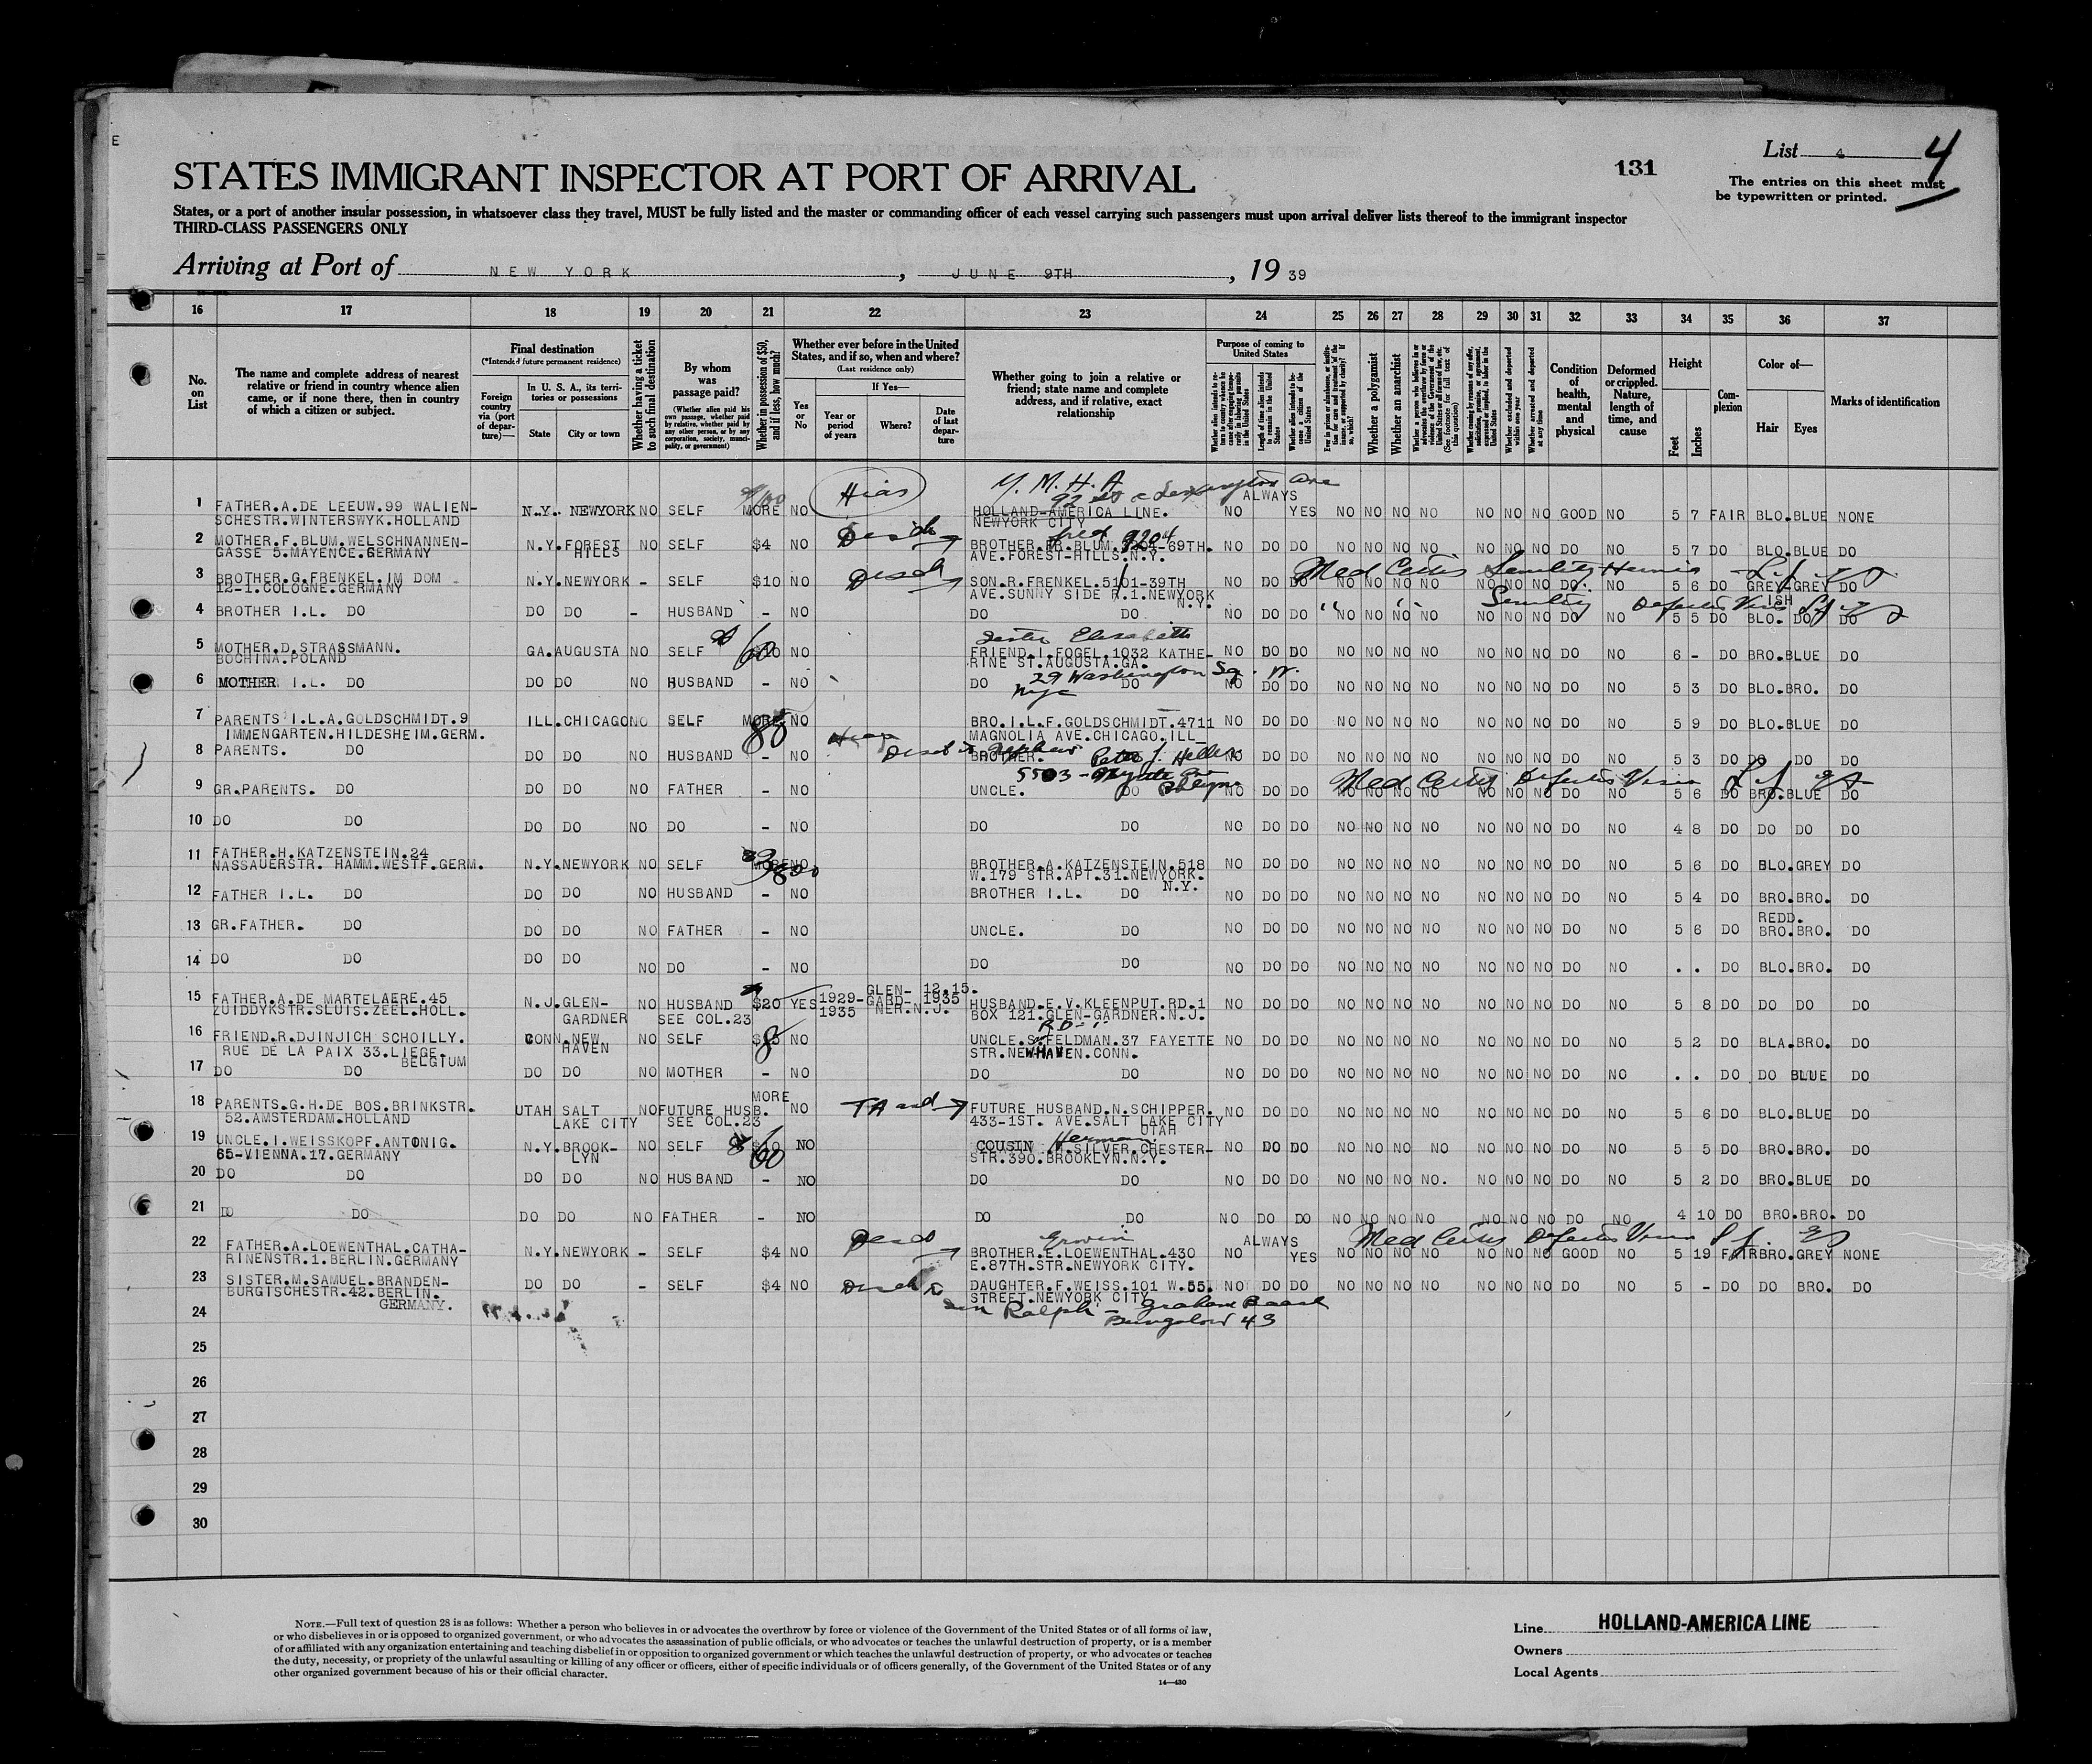 E
List 4 4
131
The entries on this sheet must
be typewritten or printed.
STATES IMMIGRANT INSPECTOR AT PORT OF ARRIVAL
States, or a port of another insular possession, in whatsoever class they travel, MUST be fully listed and the master or commanding officer of each vessel carrying such passengers must upon arrival deliver lists thereof to the immigrant inspector
THIRD-CLASS PASSENGERS ONLY
Arriving at Port of NEW YORK, JUNE 9TH, 19 39
16 17 18 19 20 21 22 23 24 25 26 27 28 29 30 31 32 33 34 35 36 37
No. on List
The name and complete address of nearest relative or friend in country whence alien came, or if none there, then in country of which a citizen or subject.
Final destination
(*Intended future permanent residence)
Foreign country via (port of departure)—
In U. S. A., its territories or possessions
State City or town
Whether having a ticket to such final destination
By whom was passage paid?
(Whether alien paid his own passage, whether paid by relative, whether paid by any other person, or by any corporation, society, municipality, or government)
Whether in possession of $50, and if less, how much?
Whether ever before in the United States, and if so, when and where?
(Last residence only)
Yes or No
If Yes—
Year or period of years
Where?
Date of last departure
Whether going to join a relative or friend; state name and complete address, and if relative, exact relationship
Purpose of coming to United States
Whether a polygamist
Whether an anarchist
Condition of health, mental and physical
Deformed or crippled. Nature, length of time, and cause
Height
Feet Inches
Complexion
Color of—
Hair Eyes
Marks of identification
Hias Y. M. H. A
92 St & Lexington Ave
1 FATHER.A.DE LEEUW.99 WALIEN- N.Y. NEWYORK NO SELF MORE NO HOLLAND-AMERICA LINE. NO ALWAYS YES NO NO NO NO NO NO NO GOOD NO 5 7 FAIR BLO.BLUE NONE
SCHESTR.WINTERSWYK.HOLLAND NEWYORK CITY
2 MOTHER.F.BLUM.WELSCHNANNEN- N.Y.FOREST HILLS NO SELF $4 NO BROTHER.DR.BLUM. 9204-69TH. NO DO DO NO NO NO NO NO NO NO DO NO 5 7 DO BLO.BLUE DO
GASSE 5.MAYENCE.GERMANY AVE.FOREST-HILLS.N.Y.
3 BROTHER.G.FRENKEL.IM DOM N.Y.NEWYORK - SELF $10 NO SON.R.FRENKEL.5101-39TH NO DO DO NO NO NO NO NO NO NO DO. NO 5 6 DO GREY-GREY DO
12-1.COLOGNE.GERMANY AVE.SUNNY SIDE R.1.NEWYORK N.Y. ISH
Med Certif Senility Hernia
4 BROTHER I.L. DO DO DO - HUSBAND - NO DO DO NO DO DO NO NO NO NO NO NO NO DO NO 5 5 DO BLO. DO DO
Senility
Sister Elisabeth
5 MOTHER.D.STRASSMANN. GA.AUGUSTA NO SELF 60 NO FRIEND.I.FOGEL.1032 KATHE- NO DO DO NO NO NO NO NO NO NO DO NO 6 - DO BRO.BLUE DO
BOCHINA.POLAND RINE ST.AUGUSTA.GA.
29 Washington Sq. W.
nyc
6 MOTHER I.L. DO DO DO NO HUSBAND - NO DO DO NO DO DO NO NO NO NO NO NO NO DO NO 5 3 DO BLO.BRO. DO
7 PARENTS I.L.A.GOLDSCHMIDT.9 ILL.CHICAGO NO SELF MORE NO BRO.I.L.F.GOLDSCHMIDT.4711 NO DO DO NO NO NO NO NO NO NO DO NO 5 9 DO BLO.BLUE DO
IMMENGARTEN.HILDESHEIM.GERM. MAGNOLIA AVE.CHICAGO.ILL
8 PARENTS. DO DO DO NO HUSBAND - NO BROTHER. NO DO DO NO NO NO NO NO NO NO DO NO 5 3 DO DO DO DO
9 GR.PARENTS. DO DO DO NO FATHER - NO UNCLE. DO NO DO DO NO NO NO NO NO NO NO DO NO 5 6 DO BRO.BLUE DO
10 DO DO DO DO NO DO - NO DO DO NO DO DO NO NO NO NO NO NO NO DO NO 4 8 DO DO DO DO
11 FATHER.H.KATZENSTEIN.24 N.Y.NEWYORK NO SELF MORE NO BROTHER.A.KATZENSTEIN.518 NO DO DO NO NO NO NO NO NO NO DO NO 5 6 DO BLO.GREY DO
NASSAUERSTR. HAMM.WESTF.GERM. W.179 STR.APT.31.NEWYORK. N.Y.
12 FATHER I.L. DO DO DO NO HUSBAND - NO BROTHER I.L. DO NO DO DO NO NO NO NO NO NO NO DO NO 5 4 DO BRO.BRO. DO
13 GR.FATHER. DO DO DO NO FATHER - NO UNCLE. DO NO DO DO NO NO NO NO NO NO NO DO NO 5 6 DO REDD. BRO.BRO. DO
14 DO DO DO DO NO DO - NO DO DO NO DO DO NO NO NO NO NO NO NO DO NO . . DO BLO.BRO. DO
15 FATHER.A.DE MARTELAERE.45 N.J.GLEN- GARDNER NO HUSBAND SEE COL.23 $20 YES 1929-1935 GLEN-GARD-NER.N.J. 12.15.1935 HUSBAND.E.V.KLEENPUT.RD.1 NO DO DO NO NO NO NO NO NO NO DO NO 5 8 DO DO DO DO
ZUIDDYKSTR.SLUIS.ZEEL.HOLL. BOX 121.GLEN-GARDNER.N.J.
16 FRIEND.R.DJINJICH SCHOILLY. CONN.NEW HAVEN NO SELF NO UNCLE.S.FELDMAN.37 FAYETTE NO DO DO NO NO NO NO NO NO NO DO NO 5 2 DO BLA.BRO. DO
RUE DE LA PAIX 33.LIEGE. BELGIUM STR.NEWHAVEN.CONN.
17 DO DO DO DO NO MOTHER - NO DO DO NO DO DO NO NO NO NO NO NO NO DO NO . . DO DO BLUE DO
18 PARENTS.G.H.DE BOS.BRINKSTR. UTAH SALT LAKE CITY NO FUTURE HUSB. SEE COL.23 MORE NO FUTURE HUSBAND.N.SCHIPPER. NO DO DO NO NO NO NO NO NO NO DO NO 5 6 DO BLO.BLUE DO
52.AMSTERDAM.HOLLAND 433-1ST. AVE.SALT LAKE CITY UTAH
19 UNCLE.I.WEISSKOPF.ANTONIG. N.Y.BROOK-LYN NO SELF 60 NO COUSIN Herman H.SILVER.CHESTER- NO DO DO NO NO NO NO NO NO NO DO NO 5 5 DO BRO.BRO. DO
65-VIENNA.17.GERMANY STR.390.BROOKLYN.N.Y.
20 DO DO DO DO NO HUSBAND - NO DO DO NO DO DO NO NO NO NO. NO NO NO DO NO 5 2 DO BRO.BLUE DO
21 DO DO DO DO NO FATHER - NO DO DO NO DO DO NO NO NO NO NO NO NO DO NO 4 10 DO BRO.BRO. DO
22 FATHER.A.LOEWENTHAL.CATHA- N.Y.NEWYORK - SELF $4 NO Erwin BROTHER.E.LOEWENTHAL.430 NO ALWAYS YES NO NO NO NO NO NO NO GOOD NO 5 19 FAIR BRO.GREY NONE
RINENSTR.1.BERLIN.GERMANY E.87TH.STR.NEWYORK CITY.
23 SISTER.M.SAMUEL.BRANDEN- DO DO - SELF $4 NO DAUGHTER.F.WEISS.101 W.55. NO DO DO NO NO NO NO NO NO NO DO NO 5 - DO DO BRO. DO
BURGISCHESTR.42.BERLIN. GERMANY. STREET.NEWYORK CITY
son Ralph -
Bungalow 43
24
25
26
27
28
29
30
NOTE.—Full text of question 28 is as follows: Whether a person who believes in or advocates the overthrow by force or violence of the Government of the United States or of all forms of law,
or who disbelieves in or is opposed to organized government, or who advocates the assassination of public officials, or who advocates or teaches the unlawful destruction of property, or is a member
of or affiliated with any organization entertaining and teaching disbelief in or opposition to organized government or which teaches the unlawful destruction of property, or who advocates or teaches
the duty, necessity, or propriety of the unlawful assaulting or killing of any officer or officers, either of specific individuals or of officers generally, of the Government of the United States or of any
other organized government because of his or their official character.
14—430
Line HOLLAND-AMERICA LINE
Owners
Local Agents